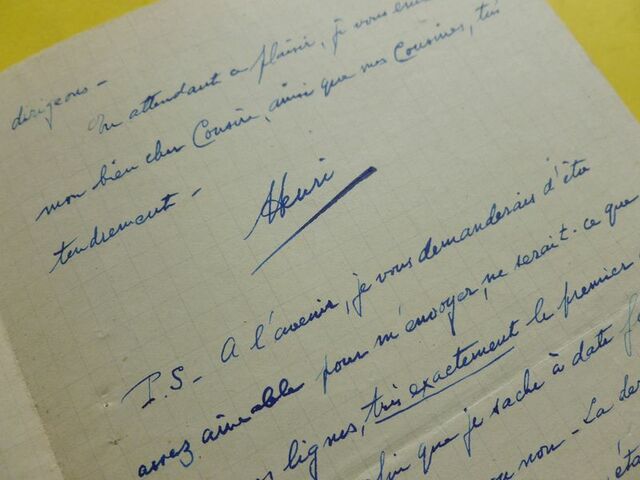 dirigeons -
En attendant ce plaisir, je vous
mon bien cher Cousin, ainsi que mes Cousines, très
tendrement -
Henri
P.S - A l'avenir, je vous demanderais d'être
assez aimable pour m'envoyer, ne serait-ce que
lignes, très exactement le premier
que je sache à date
ou non - La